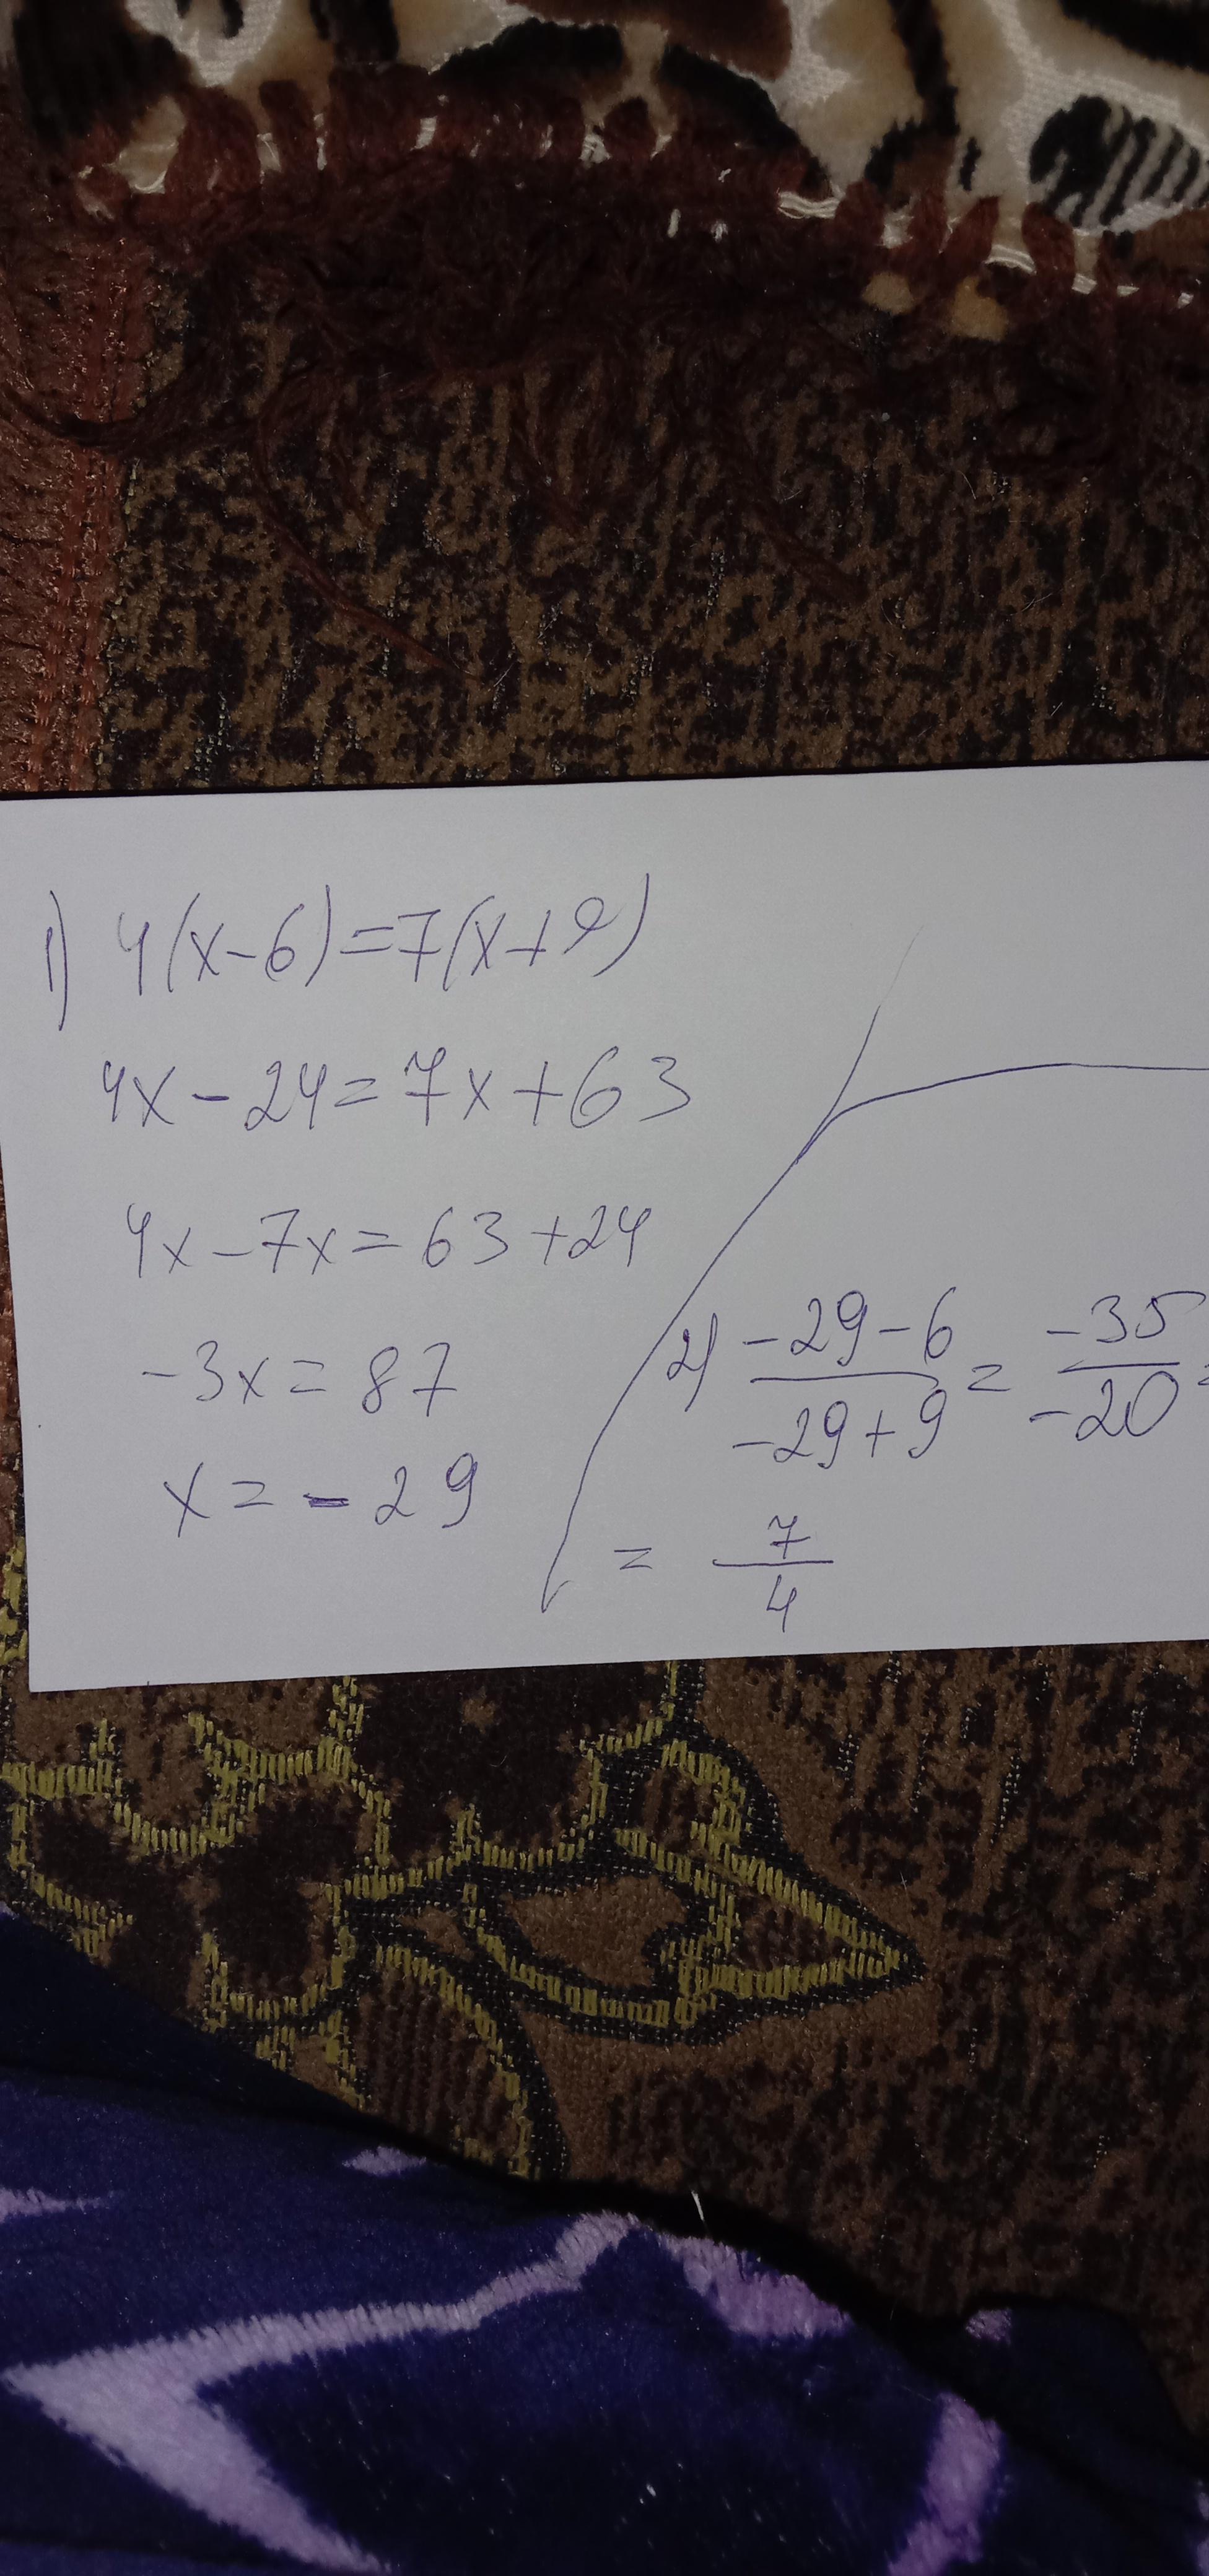 1) 4(x-6)=7(x+9)
4x-24=7x+63
4x-7x=63+24
-3x=87
x=-29
2) (-29-6)/(-29+9) = (-35)/(-20) =
= 7/4